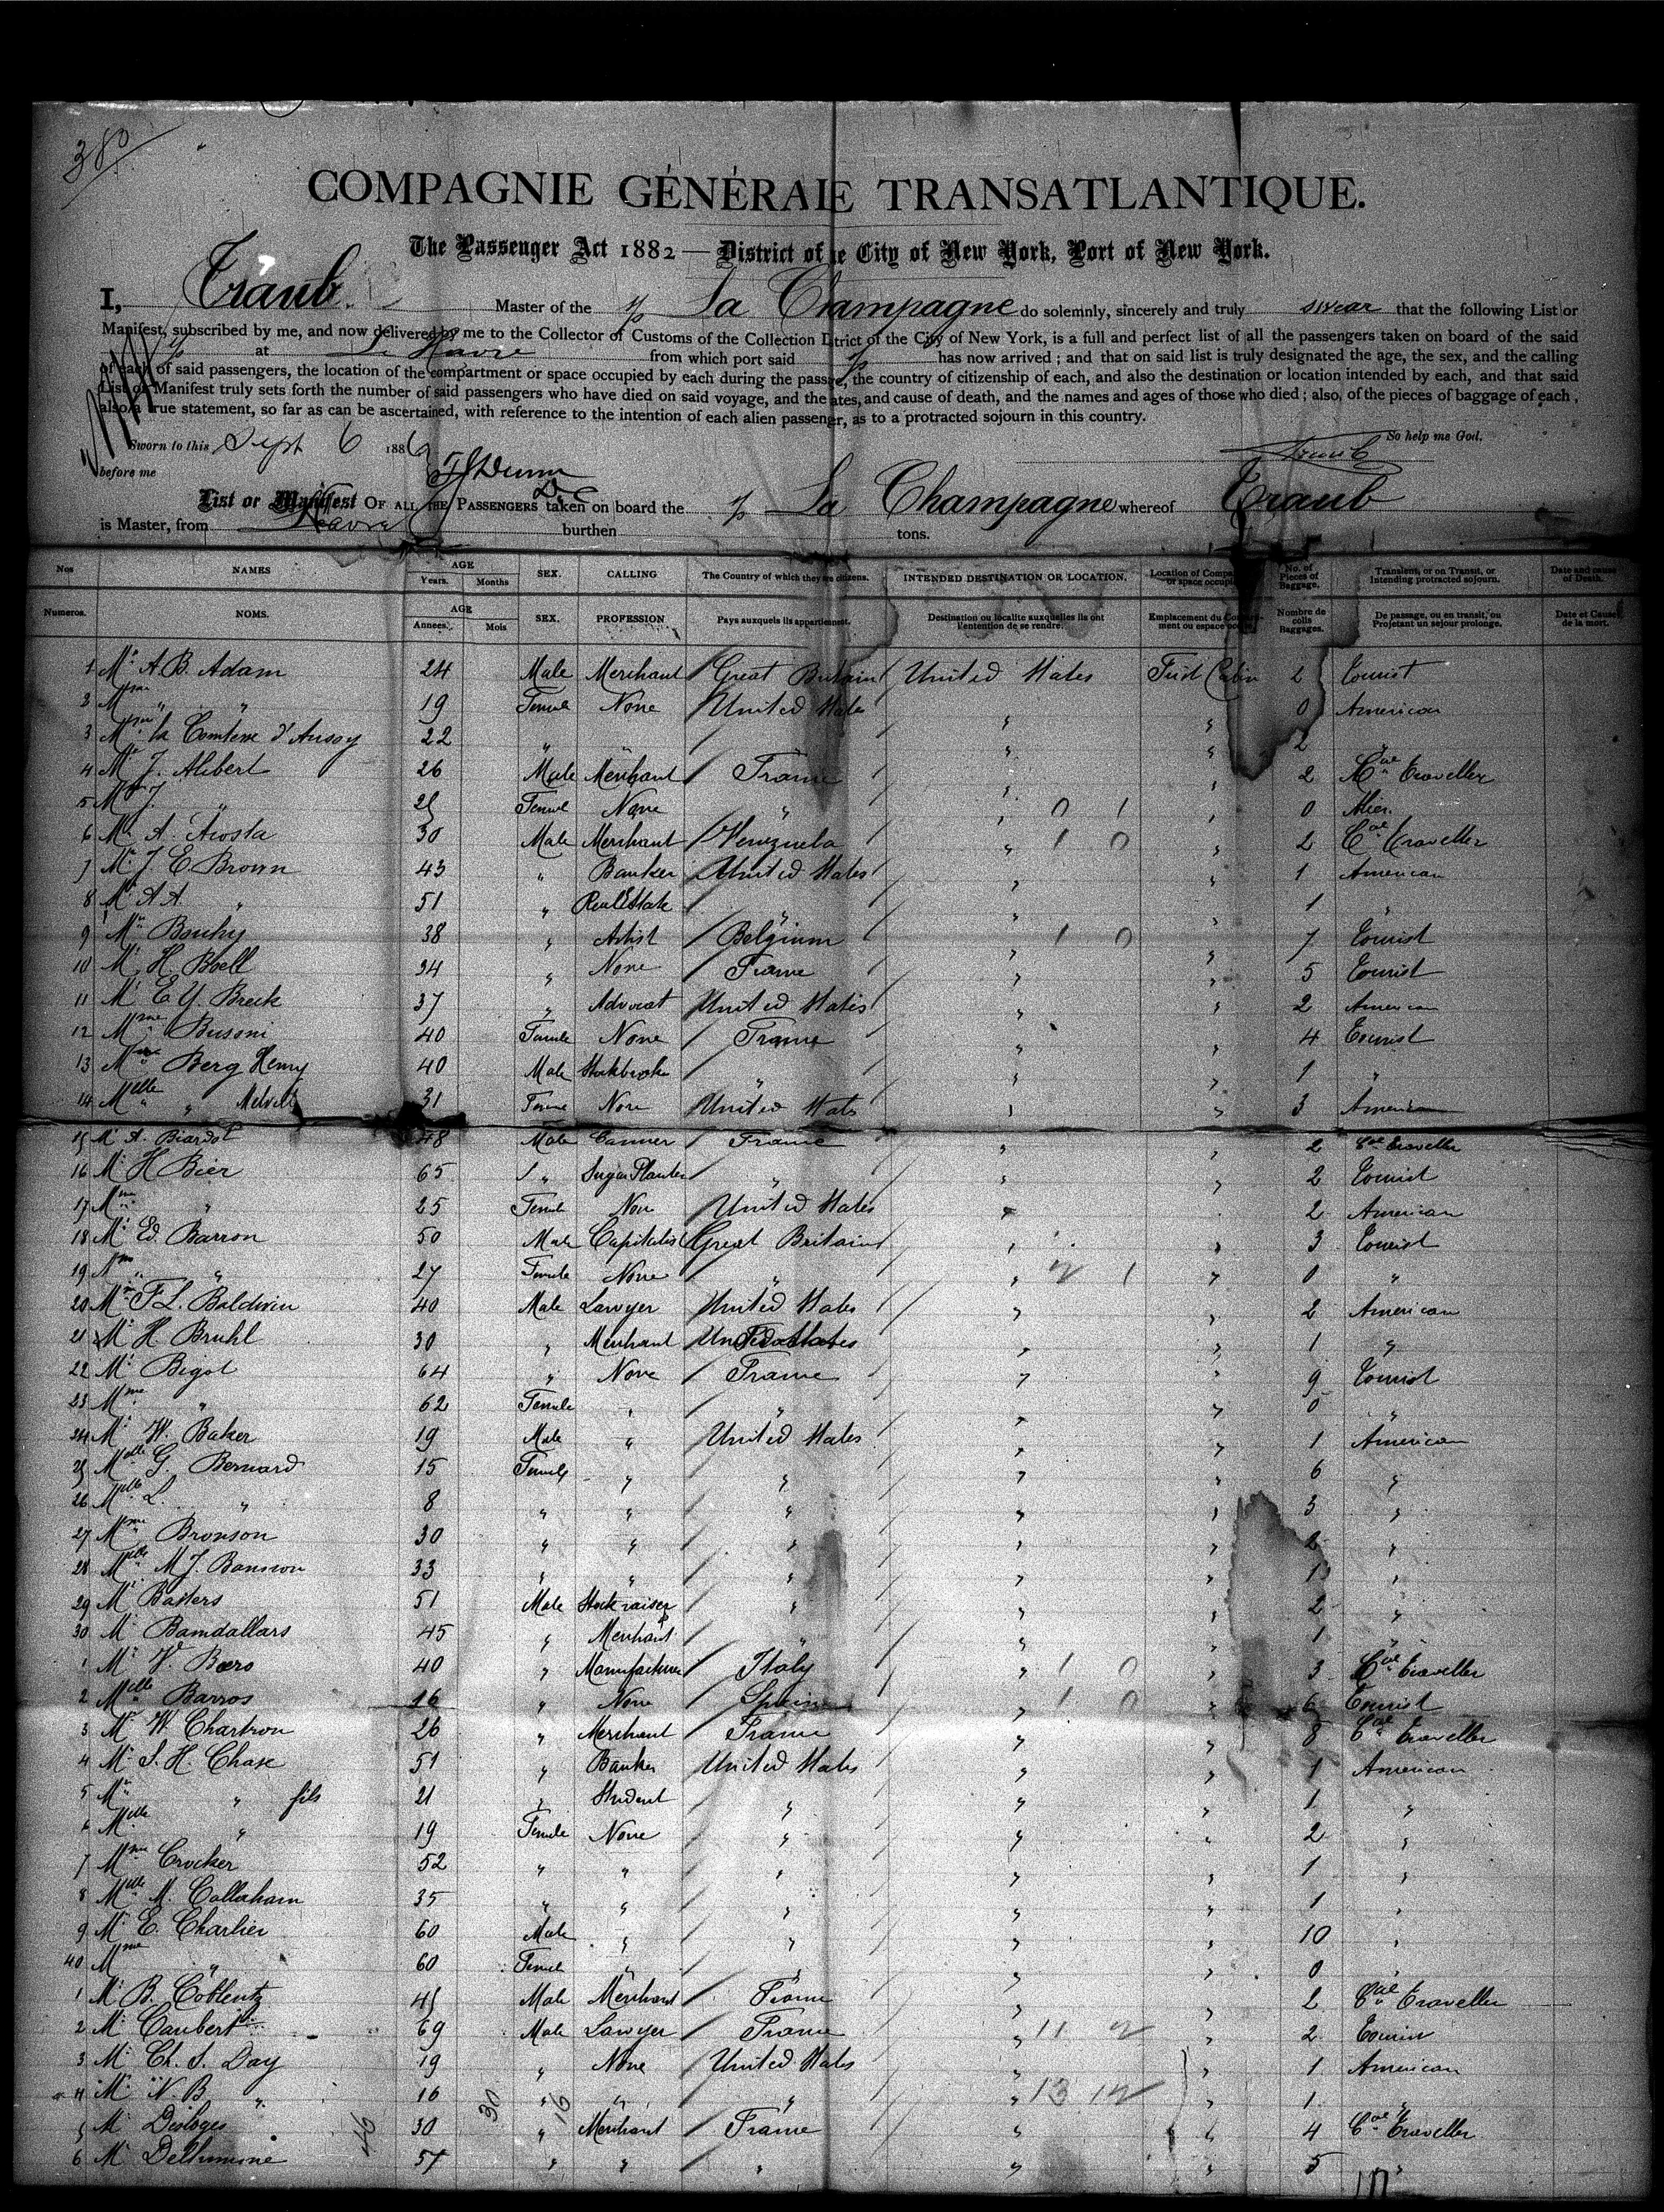 380
COMPAGNIE GÉNÉRALE TRANSATLANTIQUE.
The Passenger Act 1882 — District of the City of New York, Port of New York.
I, Traub Master of the s/s La Champagne do solemnly, sincerely and truly swear that the following List or
Manifest, subscribed by me, and now delivered by me to the Collector of Customs of the Collection District of the City of New York, is a full and perfect list of all the passengers taken on board of the said
s/s at Le Havre from which port said s/s has now arrived ; and that on said list is truly designated the age, the sex, and the calling
of each of said passengers, the location of the compartment or space occupied by each during the passage, the country of citizenship of each, and also the destination or location intended by each, and that said
List or Manifest truly sets forth the number of said passengers who have died on said voyage, and the dates, and cause of death, and the names and ages of those who died ; also, of the pieces of baggage of each ;
also a true statement, so far as can be ascertained, with reference to the intention of each alien passenger, as to a protracted sojourn in this country.
So help me God.
Sworn to this Sept 6 1886 Traub
before me
List or Manifest OF ALL THE PASSENGERS taken on board the s/s La Champagne whereof Traub
is Master, from Havre burthen tons.
Nos NAMES AGE Years. Months SEX. CALLING The Country of which they are citizens. INTENDED DESTINATION OR LOCATION. Location of or space No. of Pieces of Baggage. Transient, or on Transit, or Intending protracted sojourn. Date and cause of Death.
Numeros. NOMS. AGE Annees. Mois SEX. PROFESSION Pays auxquels ils appartiennent. Destination ou localite auxquelles ils ont l'entention de se rendre. Emplacement du ou espace Nombre de colis Baggages. De passage, ou en transit, ou Projetant un sejour prolonge. Date et Cause de la mort.
1 Mr A. B. Adam 24 Male Merchant Great Britain United States First Cabin 2 Tourist
2 Mme " " 19 Female None United States " " 0 American
3 Mme la Comtesse d' 22 " " " " " 2 "
4 Mr J. Alibert 26 Male Merchant France " " 2 Cial Traveller
5 Mme J. " Female None " " 0 1 " 0
6 Mr A. Acosta 30 Male Merchant Venezuela " 1 0 " 2 Cial Traveller
7 Mr J. E Brown 43 " Banker United States " " 1 American
8 Mr A A. " 51 " Real Estate " " " 1 "
9 Mr Bouhy 38 " Artist Belgium " 1 0 " 7 Tourist
10 Mr H. Boell 34 " None France " " 5 Tourist
11 Mr E Y. Breck 37 " Advocat United States " " 2 American
12 Mme Busoni 40 Female None France " " 4 Tourist
13 Mr Berg Henry 40 Male Stockbroker " " " 1 "
14 Melle " 31 Female None United States " " 3 American
15 Mr A. Biardot 48 Male Canner France " " 2 Cial Traveller
16 Mr H Bier 65 " Sugar Planter " " " 2 Tourist
17 Mme " 25 Female None United States " 2 American
18 Mr Ed. Barron 50 Male Capitalist Great Britain " " 3 Tourist
19 Mme " 27 Female None " " 2 1 " 0 "
20 Mr F L. Baldwin 40 Male Lawyer United States " " 2 American
21 Mr H Bruhl 30 " Merchant United States " " 1 "
22 Mr Bigot 64 " None France " " 9 Tourist
23 Mme " 62 Female " " " " 0 "
24 Mr W. Baker 19 Male " United States " " 1 American
25 Melle G. Bernard 15 Female " " " " 6 "
26 Melle L. " 8 " " " " " 3 "
27 Mme Bronson 30 " " " " " 2 "
28 Melle M J. 33 " " " " " 1 "
29 Mr 51 Male Stock raiser " " " 2 "
30 Mr Bamdallars 45 " Merchant " " " 1 "
1 Mr V. 40 " Manufacturer Italy " 1 0 " 3 Cial Traveller
2 Melle Barros 16 " None Spain " 1 0 " 6 Tourist
3 Mr W. Chartron 26 " Merchant France " " 8 Cial Traveller
4 Mr S. H. Chase 51 " Banker United States " " 1 American
5 Mr " fils 21 " Student " " " 1 "
6 Melle " 19 Female None " " " 2 "
7 Mme Crocker 52 " " " " " 1 "
8 Melle M. Callaham 35 " " " " " 1 "
9 Mr E. Charlier 60 Male " " " " 10 "
40 Mme " 60 Female " " " " 0 "
1 Mr B. Coblentz 45 Male Merchant France " " 2 Cial Traveller
2 Mr Caubert 69 Male Lawyer France " 11 2 " 2 Tourist
3 Mr Ch. S. Day 19 " None United States " " 1 American
4 Mr N. B " 16 " " " " 13 12 " 1 "
5 Mr Desloges 30 " Merchant France " " 4 Cial Traveller
6 Mr 57 " " " " " 5 "
46 30 16